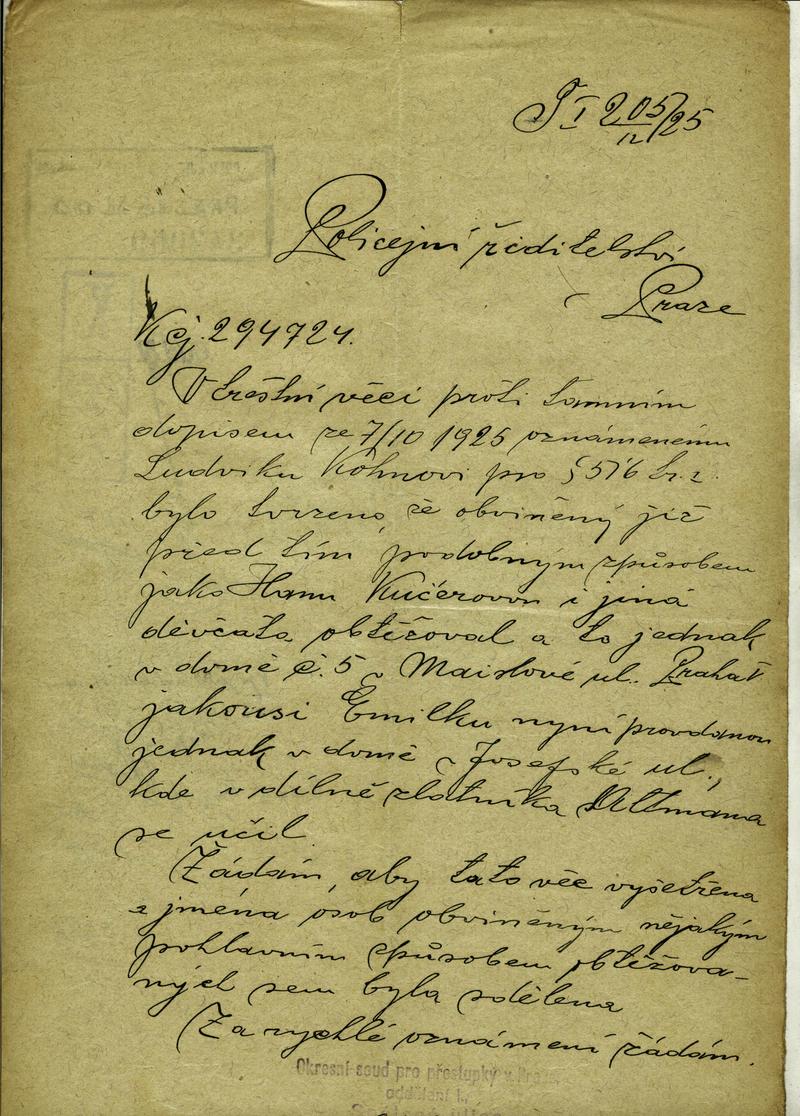 T I 205/25
12
Policejní ředitelství
v Praze
K čj. 294724.
V trestní věci proti tamním
dopisem ze 7/10 1925 oznámenému
Ludvíku Kohnovi pro § 516 tr. z.
bylo tvrzeno, že obviněný již
před tím podobným způsobem
jako Hanu Kučerovou i jiná
děvčata obtěžoval a to jednak
v domě č. 5 v Maislově ul. Praha V
jakousi Emilku nyní provdanou
jednak v domě v Josefské ul.,
kde v dílně zlatníka Altmana
se učil.
Žádám, aby tato věc vyšetřena
a jména osob obviněným nějakým
pohlavním způsobem obtěžova-
ných sem byla sdělena
Za rychlé oznámení žádám.
Okresní soud pro přestupky v Praze,
oddělení I.,